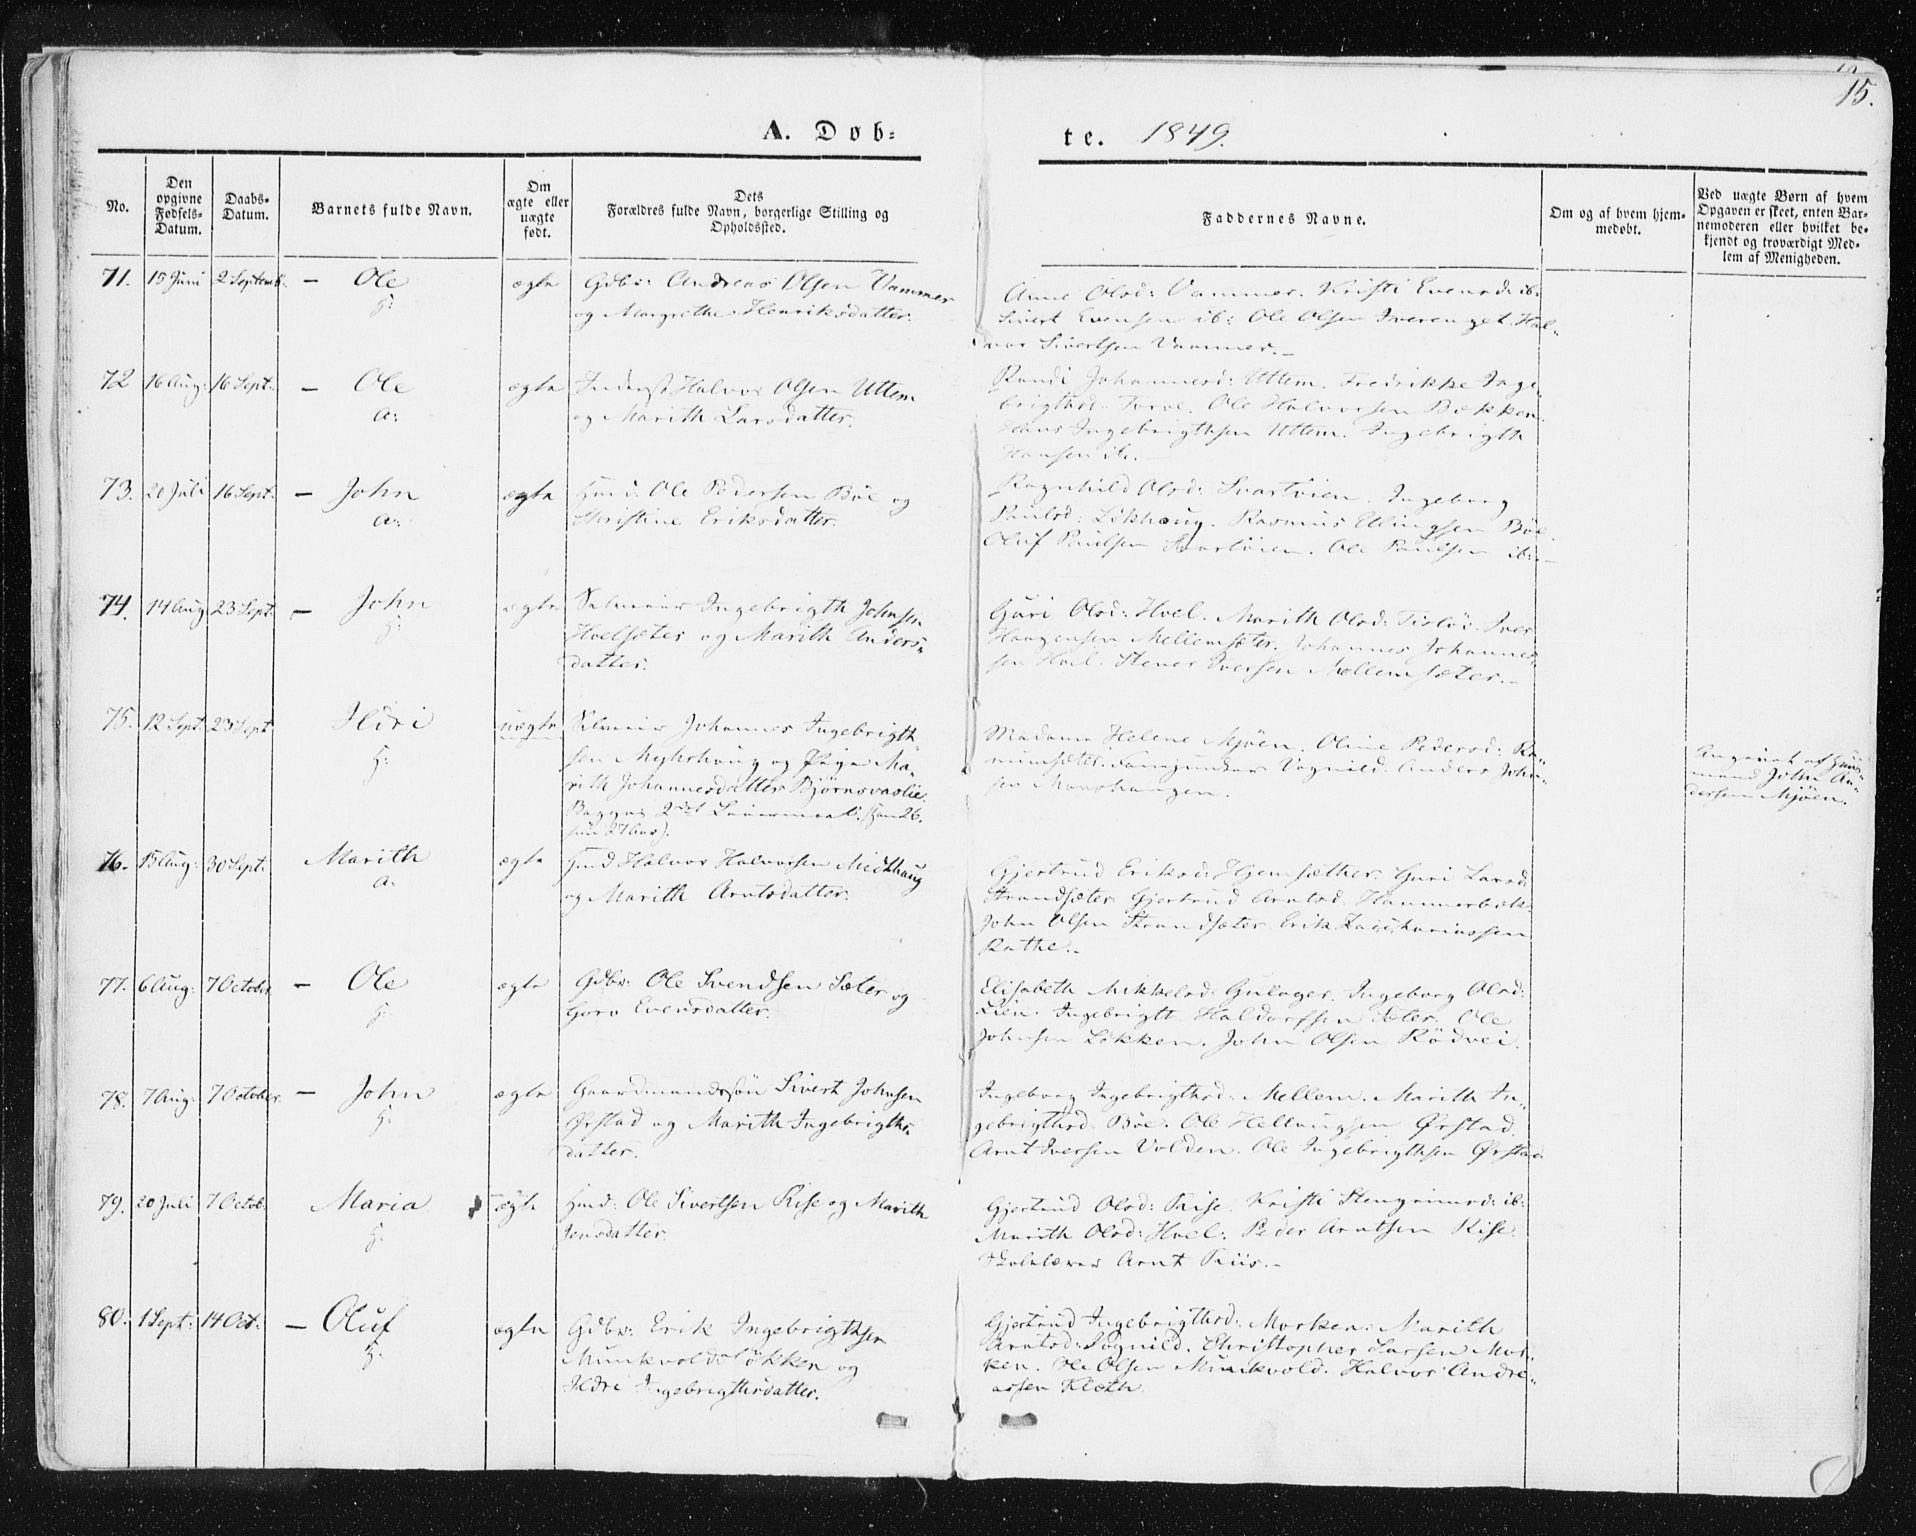 15.
A. Døb-
te. 1849.
No.
Den opgivne Fødsels-Datum.
Daabs-Datum.
Barnets fulde Navn.
Om ægte eller uægte født.
Dets Forældres fulde Navn, borgerlige Stilling og Opholdssted.
Faddernes Navne.
Om og af hvem hjem-medøbt.
Ved uægte Børn af hvem Opgaven er skeet, enten Bar-nemoderen eller hvilket be-kjendt og troværdigt Med-lem af Menigheden.
71. 15 Juni 2 Septemb. — Ole ægte Gdbr: Andreas Olsen Vammer
H: og Margrethe Henriksdatter.
Anne Olsd: Vammer. Kristi Evensd: ib:
Sivert Evensen ib: Ole Olsen Hal-
vor Sivertsen Vammer.—
72 16 Aug: 16 Sept: — Ole ægte Inderst Halvor Olsen Uttem
A: og Marith Larsdatter.
Randi Johannesd: Uttem. Fredrikke Inge-
brigthsd: Ole Halvorsen Bækken.
Hans Ingebrigthsen Uttem. Ingebrigth
Hansen ib.—
73. 20 Juli 16 Sept: — John ægte Hmd: Ole Pedersen Böe og
A: Christine Eriksdatter.
Ragnhild Olsd: Svartöien. Ingeborg
Paulsd: Lökhaug. Rasmus Ellingsen Böe.
Oluf Paulsen Svartöien. Ole Paulsen ib:—
74. 14 Aug 23 Sept: — John ægte Selveier Ingebrigth Johnsen
H: Hoelsæter og Marith Anders-
datter.
Guri Olsd: Hoel. Marith Olsd: Iver
Haagensen Mellemsæter. Johannes Johannes-
sen Hoel. Stener Iversen Mellemsæter.—
75. 12 Sept: 23 Sept: Ildri uægte Selveier Johannes Ingebrigth-
H: sen Myhrhaug og Pige Ma-
rith Johannesdatter Bjørnsvaslie.
Begges 2det Leiermaal. (Han 26,
hun 27 Aar).
Madame Helene Mjöen. Oline Pedersd: Ra-
Vognild. Anders John-
sen Monshaugen.
Angivet af Huus-
mand John An-
dersen Mjöen.
76. 15 Aug: 30 Sept: Marith ægte Hmd Halvor Halvorsen Midthaug
A: og Marith Arntsdatter.
Gjertrud Eriksd: Hjemsæther. Guri Larsd:
Strandsæter. Gjertrud Arntsd: Hammerbæk.
John Olsen Strandsæter. Erik Zachariassen
Rathe.—
77. 6 Aug: 7 October — Ole ægte Gdbr: Ole Svendsen Sæter og
H: Goro Evensdatter.
Elisabeth Mikkelsd: Gulager. Ingeborg Olsd:
Lien. Ingebrigt Haldorssen Sæter. Ole
Johnsen Løkken. John Olsen Rödvei.
78. 7 Aug: 7 October — John ægte Gaardmandssön Sivert Johnsen
H: Ørstad og Marith Ingebrigths-
datter.
Ingeborg Ingebrigthsd: Mellem. Marith In-
gebrigthsd: Böe. Ole Ørstad.
Arnt Iversen Volden. Ole Ingebrigthsen Ørstad.
79. 20 Juli 7 Octob: Maria ægte Hmd: Ole Sivertsen Rise og Marith
H: Jensdatter.
Gjertrud Olsd: Rise. Kristi Stengrimsd: ib:
Marith Olsd: Hoel. Peder Arntsen Rise.
Skolelærer Arnt Riis.—
80. 1 Sept: 14 Oct: — Oluf ægte Gdbr: Erik Ingebrigthsen
H: Munkvoldsløkken og
Ildri Ingebrigthsdatter.
Gjertrud Ingebrigthsd: Morken. Marith
Arntsd: Christopher Larsen Mor-
ken. Ole Olsen Munkvold. Halvor Andre-
assen Kleth.